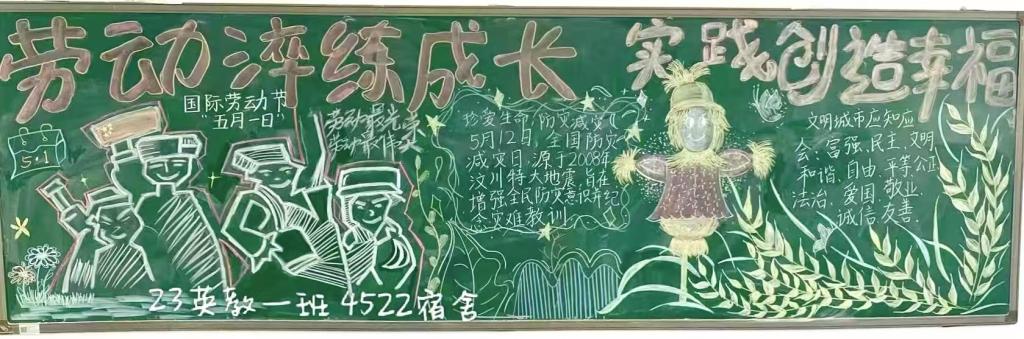 劳动淬练成长
实践创造幸福
国际劳动节
"五月一日"
5.1
劳动最光荣
珍爱生命,防灾减灾
5月12日,全国防灾
减灾日,源于2008年
汶川特大地震,旨在
增强全民防灾意识并纪
念灾难教训
文明城市应知应
会:富强、民主、文明
和谐、自由、平等、公正
法治、爱国、敬业、
诚信、友善
23英教一班 4522宿舍